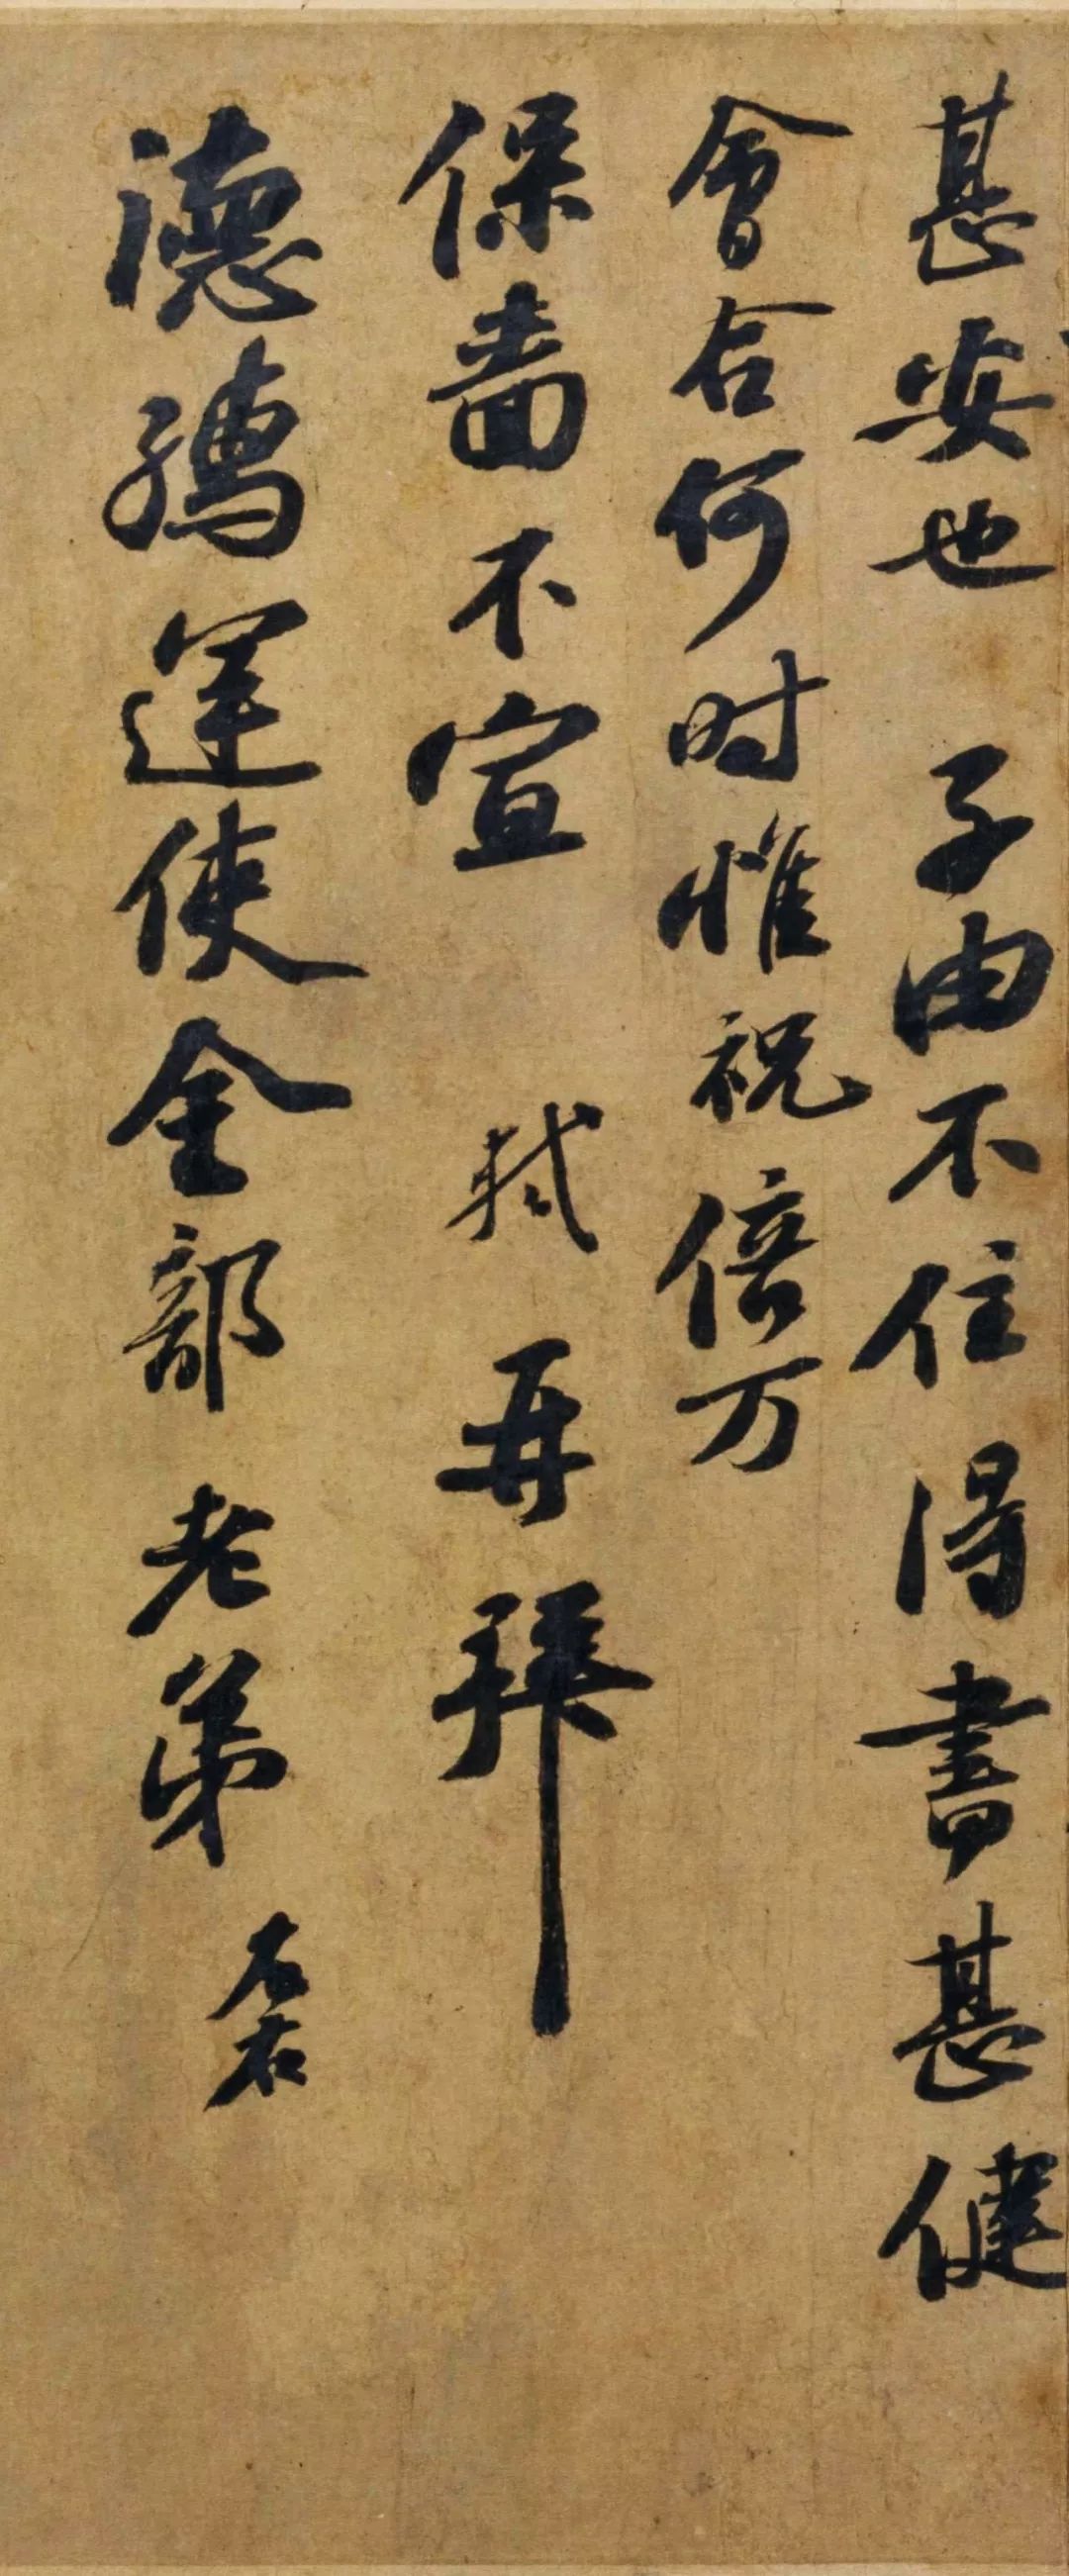 甚安也子由不住得書甚健
會合何時惟祝倍万
保嗇不宣軾再拜
德孺運使金部老弟左右